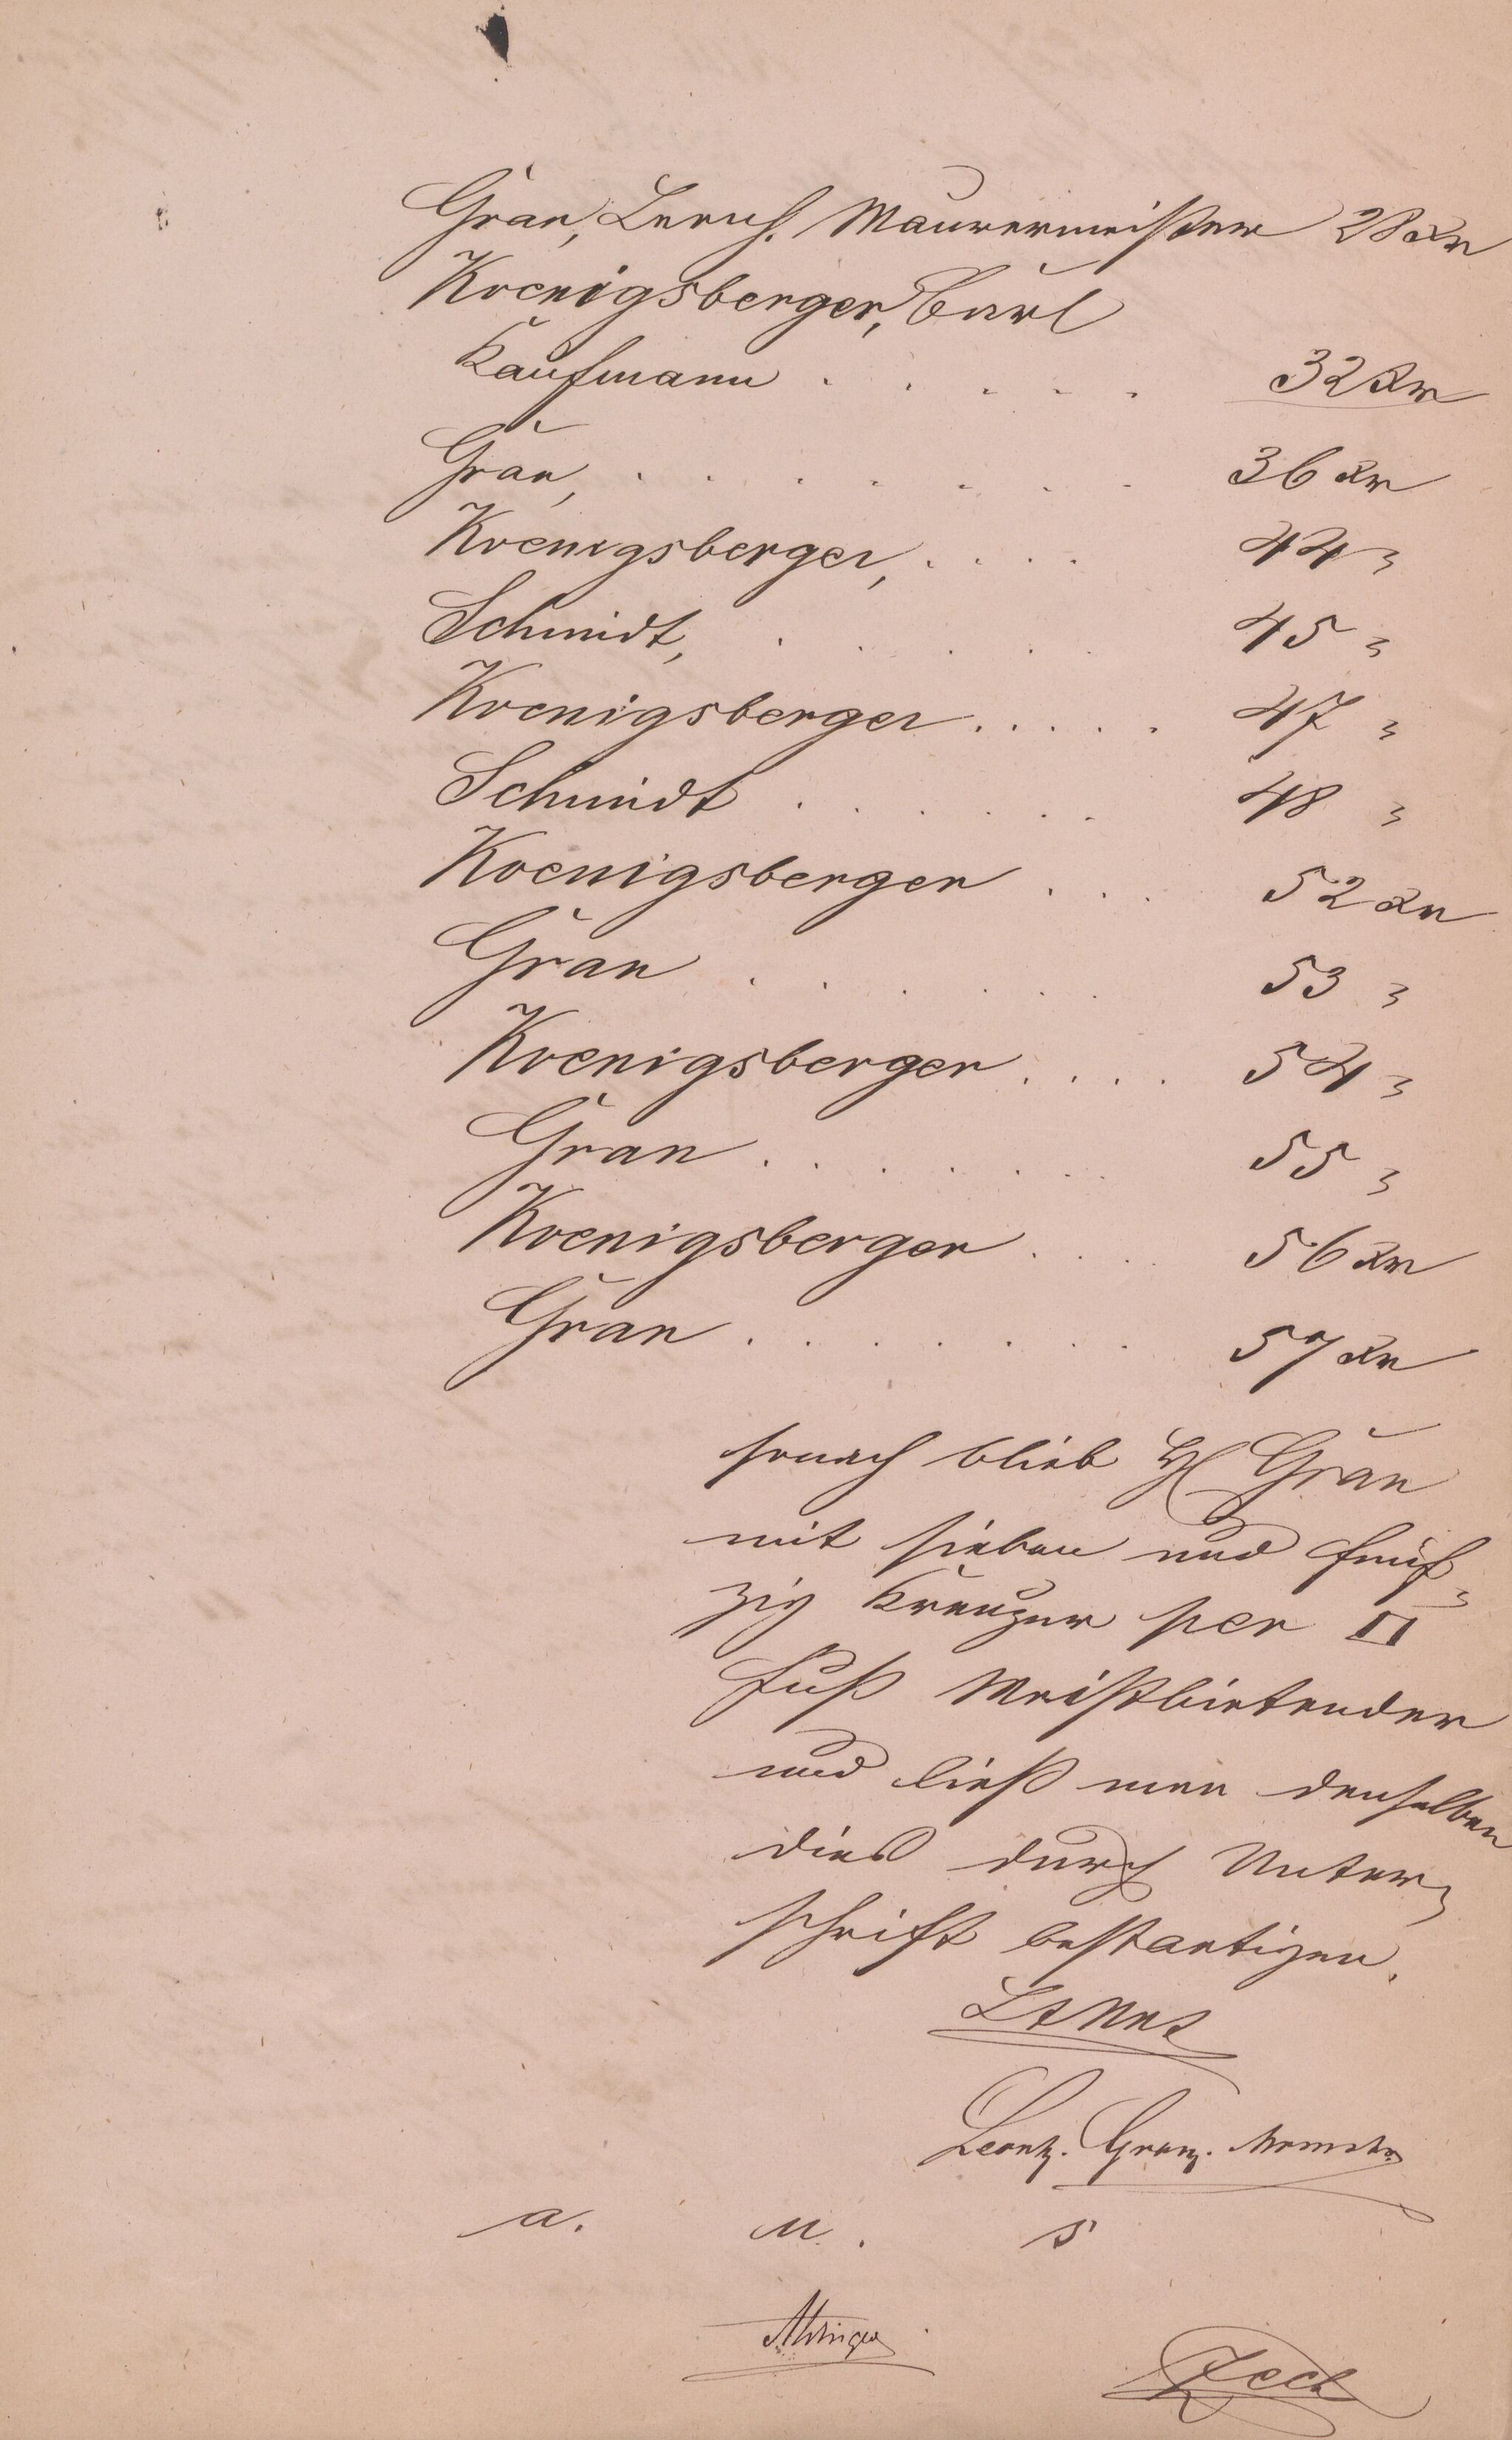 Gran, Leonh. Maurermeister 28 Kr
Koenigsberger, Carl
Kaufmann . . . . . 32 Kr
Gran, . . . . . . . 36 Kr
Koenigsberger, . . . . 44 "
Schmidt, . . . . . 45 "
Koenigsberger . . . . . 47 "
Schmidt . . . . . . 48 "
Koenigsberger . . . 52 Kr
Gran . . . . . . 53 "
Koenigsberger . . . . 54 "
Gran . . . . . . . 55 "
Koenigsberger . . . 56 Kr
Gran . . . . . . . 57 Kr
sonach blieb H Gran
mit sieben und fünf-
zig Kreuzer per □
Fuß Meistbietender
und ließ man denselben
dies durch Unter-
schrift bestaetigen.
Leonh. Gran.
a. u. s
Zech